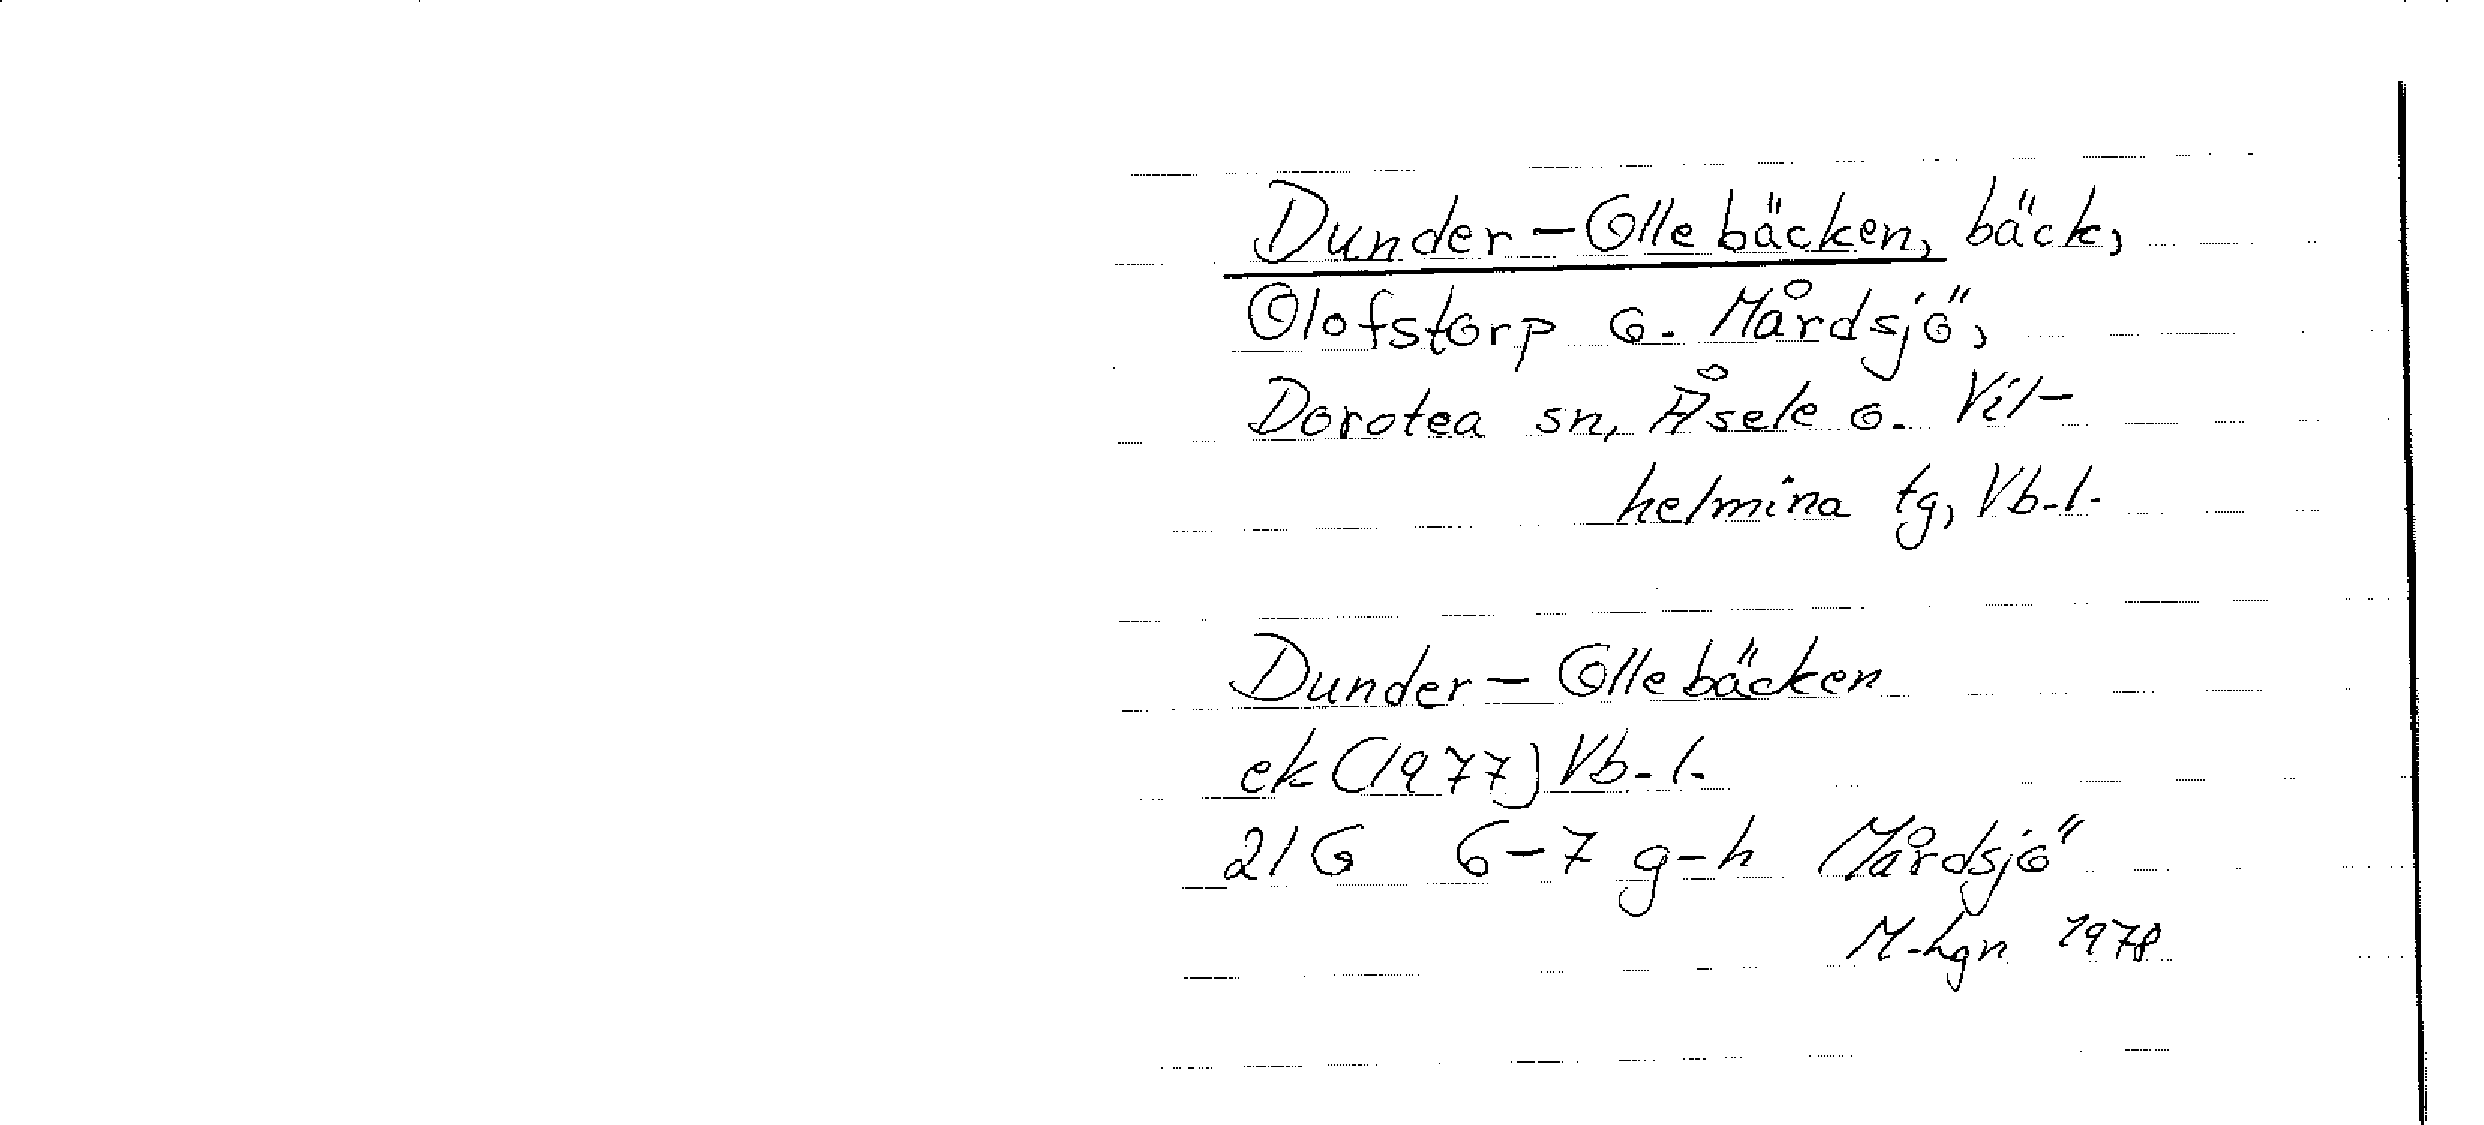 Dunder-Ollebäcken, bäck,
Olofstorp o. Mårdsjö,
Dorotea sn, Åsele o. Vil-
helmina tg, Vb. l.
Dunder-Ollebäcken
ek (1977) Vb. l.
21G 6-7 g-h Mårdsjö
M-hgn 1978